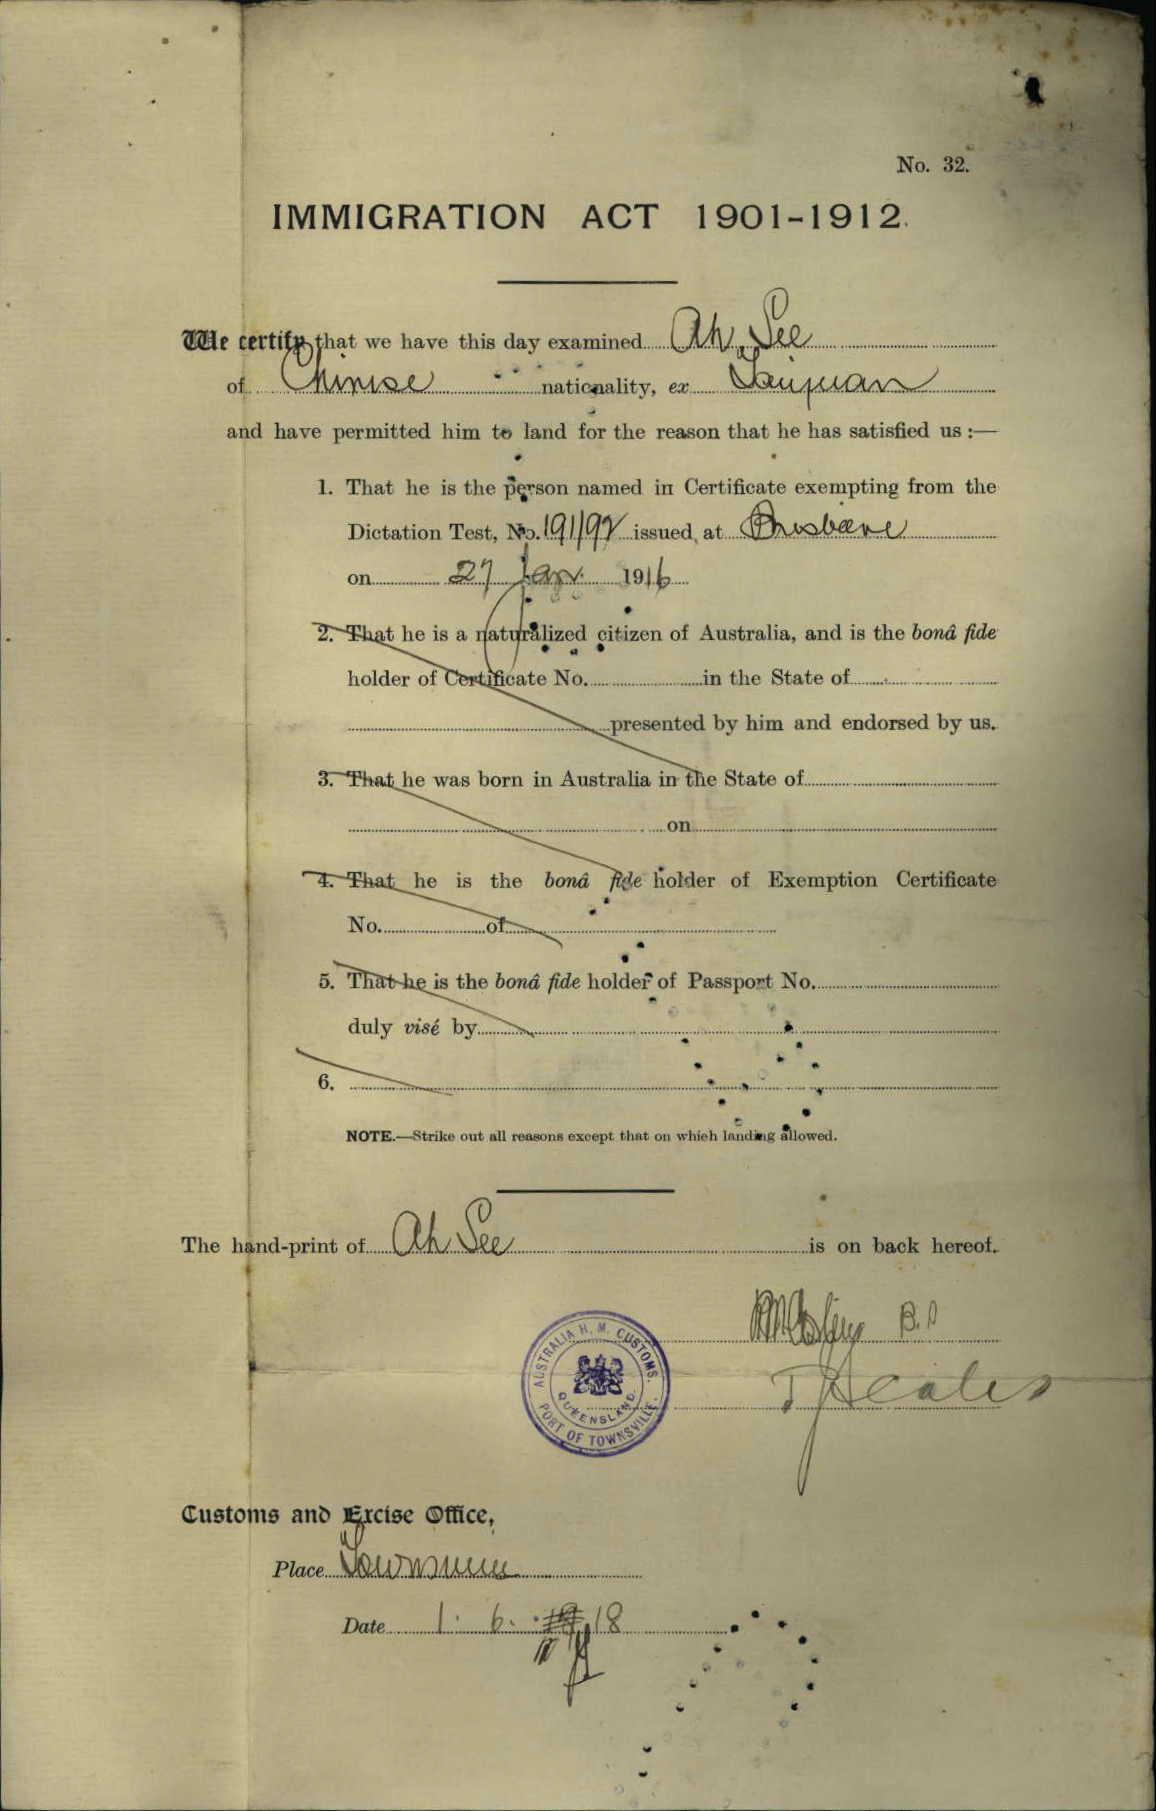 No. 32.
IMMIGRATION ACT 1901-1912.
We certify that we have this day examined Ah See
of Chinese nationality, ex Taiyuan
and have permitted him to land for the reason that he has satisfied us :—
1. That he is the person named in Certificate exempting from the
Dictation Test, No. 191/92 issued at Brisbane
on 27 Jan. 1916
2. That he is a naturalized citizen of Australia, and is the bonâ fide
holder of Certificate No. in the State of
presented by him and endorsed by us.
3. That he was born in Australia in the State of
on
4. That he is the bonâ fide holder of Exemption Certificate
No. of
5. That he is the bonâ fide holder of Passport No.
duly visé by
6.
NOTE.—Strike out all reasons except that on which landing allowed.
The hand-print of Ah See is on back hereof.
AUSTRALIA H. M. CUSTOMS.
QUEENSLAND
PORT OF TOWNSVILLE.
Customs and Excise Office,
Place Townsville
Date 1. 6. 18